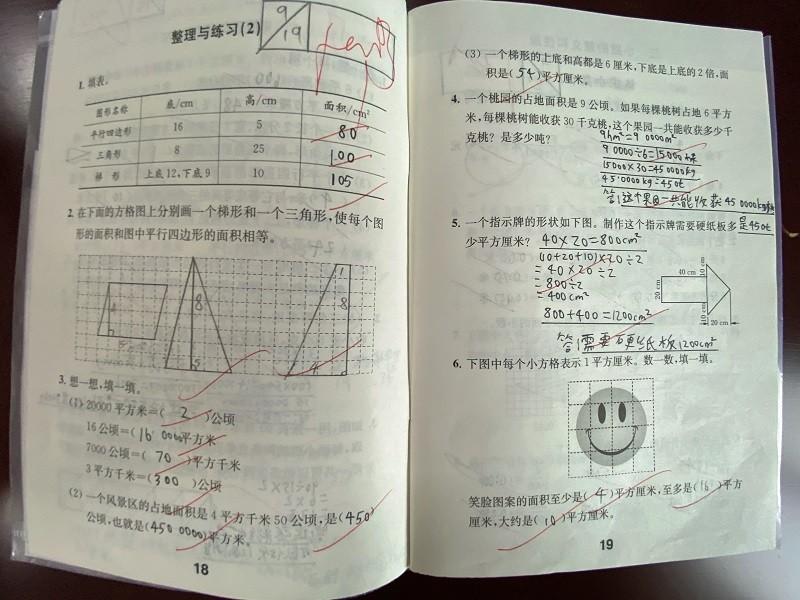 整理与练习(2)
9
19
1. 填表。
图形名称 底/cm 高/cm 面积/cm²
平行四边形 16 5 80
三角形 8 25 100
梯形 上底12,下底9 10 105
2. 在下面的方格图上分别画一个梯形和一个三角形,使每个图
形的面积和图中平行四边形的面积相等。
8
5
1
8
4
3. 想一想,填一填。
(1) 20000平方米=( 2 )公顷
16公顷=(160000)平方米
7000公顷=( 70 )平方千米
3平方千米=( 300 )公顷
(2) 一个风景区的占地面积是4平方千米50公顷,是(450)
公顷,也就是(4500000)平方米。
18
(3) 一个梯形的上底和高都是6厘米,下底是上底的2倍,面
积是(54)平方厘米。
4. 一个桃园的占地面积是9公顷。如果每棵桃树占地6平方
米,每棵桃树能收获30千克桃,这个果园一共能收获多少千
克桃?是多少吨?
9hm²=90000m²
90000÷6=15000棵
15000×30=450000kg
450000kg=450t
答:这个果园一共能收获450000kg
是450t
5. 一个指示牌的形状如下图。制作这个指示牌需要硬纸板多
少平方厘米?
40×20=800cm²
(10+20+10)×20÷2
=40×20÷2
=800÷2
=400cm²
800+400=1200cm²
答:需要硬纸板1200cm²
40 cm
10 cm
20 cm
10 cm
20 cm
6. 下图中每个小方格表示1平方厘米。数一数,填一填。
笑脸图案的面积至少是( 4 )平方厘米,至多是(16)平方
厘米,大约是(10)平方厘米。
19